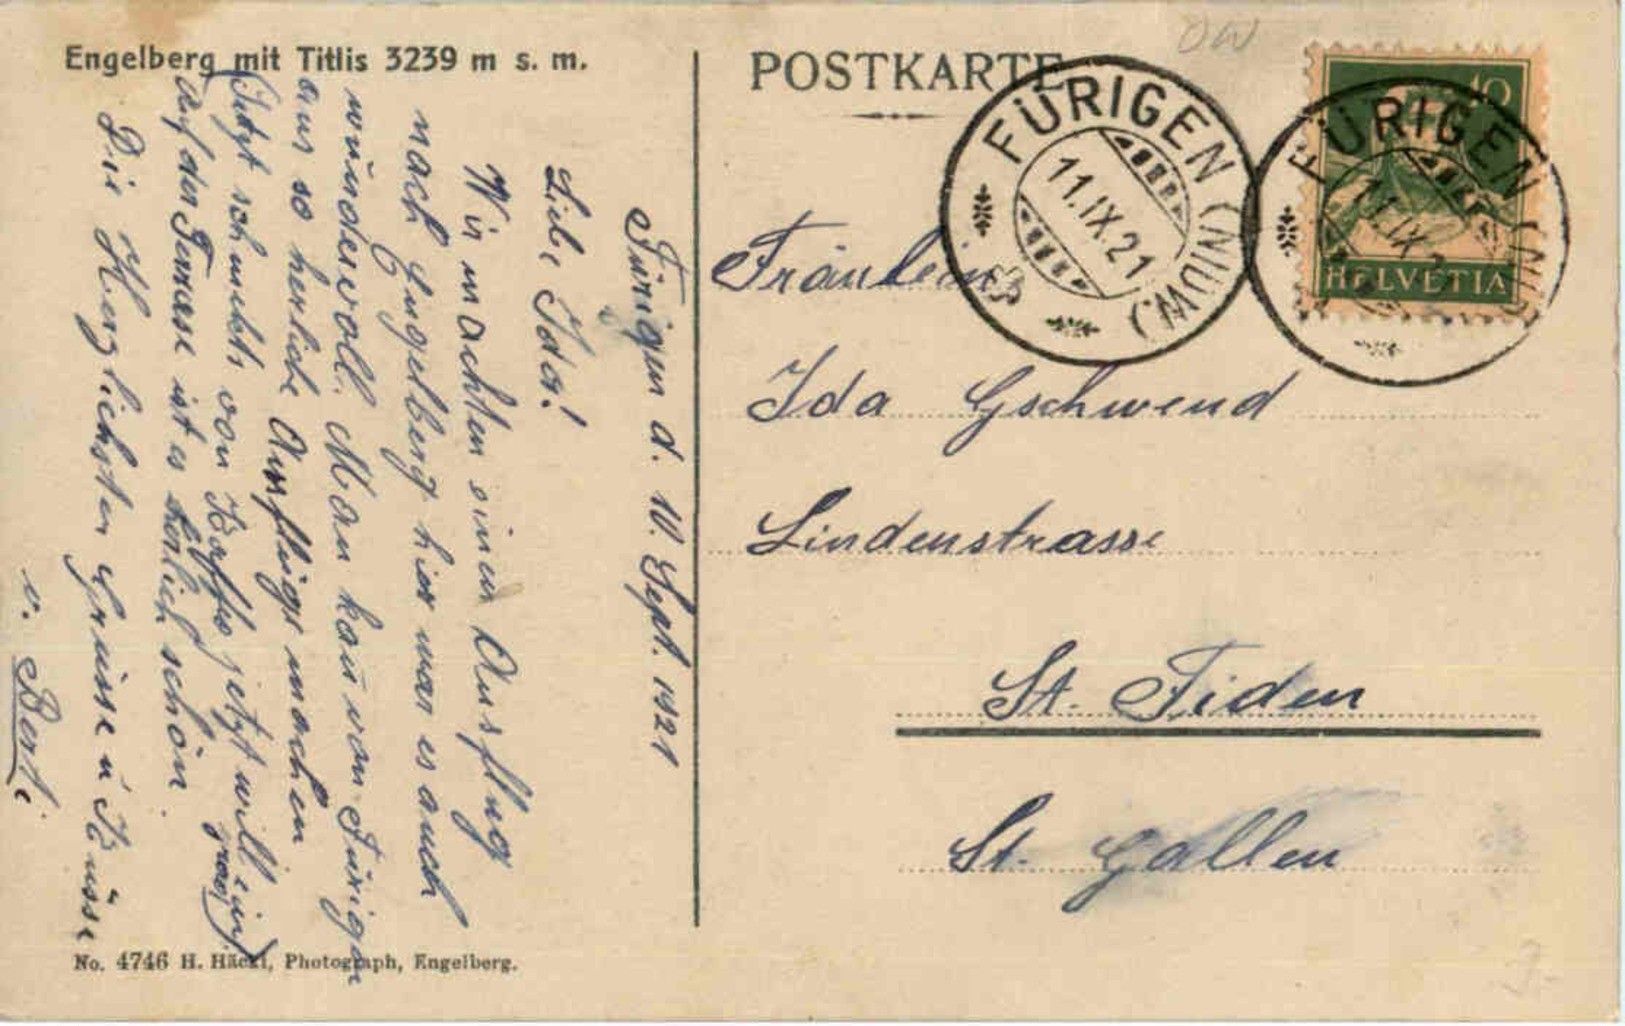 Engelberg mit Titlis 3239 m s. m.
POSTKARTE
OW
FÜRIGEN (NIDW.)
11.IX.21
FÜRIGEN (NI
11.IX.2
10
HELVETIA
Fürigen d. 10. Sept. 1921
Liebe Ida!
Wir machten einen Ausflug
nach Engelberg hier war es auch
wundervoll. Man kan von Fürigen
aus so herliche Ausflüge machen
Jetzt ich nichts von Kaffe jetzt will ein
Auf der Terrase ist es herlich schön.
Die Herzlichsten Grüsse u Küsse
v. Berti
Fräulein
Ida Gschwend
Lindenstrasse
St. Fiden
St. Gallen
No. 4746 H. Häcki, Photograph, Engelberg.